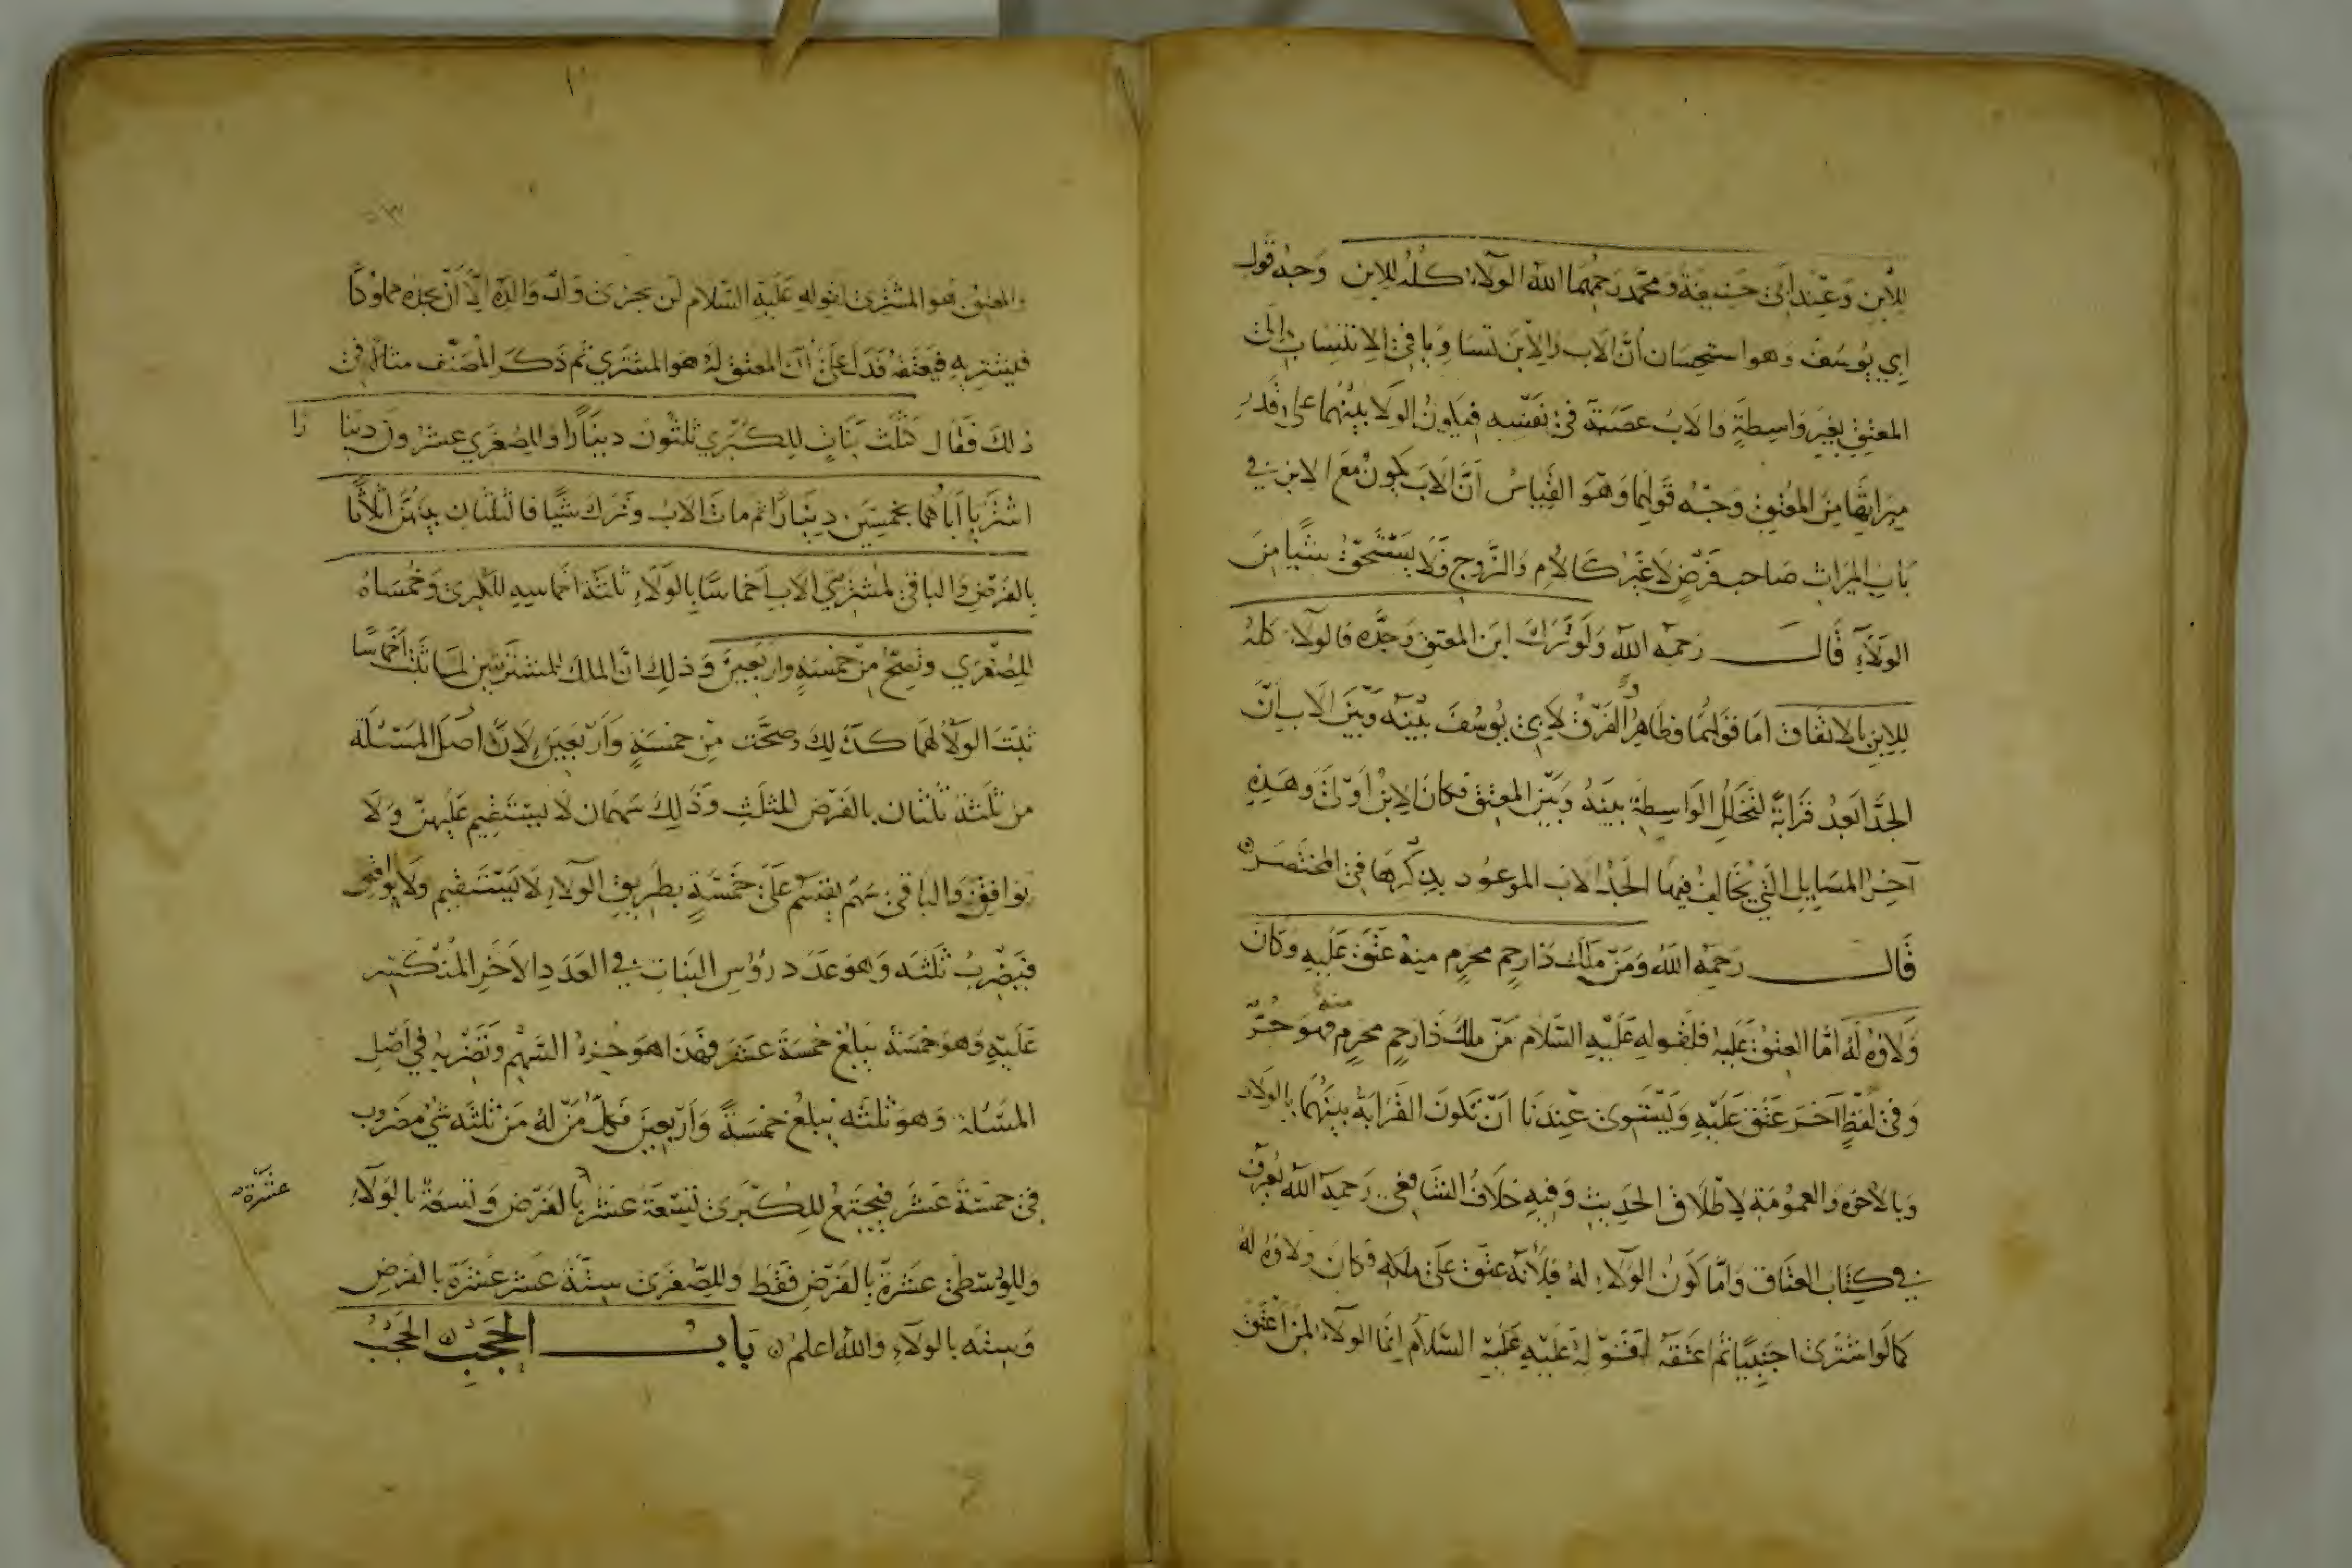 للابن وعند ابي حنيفة ومحمد رحمهما الله الولاء كله للابن وجه قول
ابي يوسف وهو استحسان أن الاب والابن تساويا في الانتساب الى
المعتق بغير واسطة والاب عصبة في نفسه فيكون الولا بينهما على قدر
ميراثهما من المعتق وجه قولهما وهو القياس أن الاب يكون مع الابن في
باب الميراث صاحب فرض لا غير كالام والزوج فلا يستحق شيا من
الولاء قال رحمه الله ولو ترك ابن المعتق وجده فالولاء كله
للابن بالاتفاق اما قولهما فظاهر والفرق لابي يوسف بينه وبين الاب ان
الجد ابعد قرابة لتخلل الواسطة بينه وبين المعتق فكان الابن أولى وهذه
آخر المسايل التي يخالف فيها الجد الاب الموعود بذكرها في المختصر
قال رحمه الله ومن ملك ذا رحم محرم منه عتق عليه وكان
ولاؤه له اما العتق عليه فلقوله عليه السلام من ملك ذا رحم محرم منه فهو حر
وفي لفظ آخر عتق عليه ويستوي عندنا ان تكون القرابة بينهما بالولاد
وبالاخوه والعمومة لاطلاق الحديث وفيه خلاف الشافعي رحمه الله يعرف
في كتاب العتاق واما كون الولاء له فلأنه عتق على ملكه فكان ولاؤه له
كما لو اشترى اجنبيا ثم اعتقه لقوله عليه عليه السلام انما الولاء لمن اعتق
والمعتق هو المشتري لقوله عليه السلام لن يجزي ولد والده الا أن يجده مملوكا
فيشتريه فيعتقه فدل على أن المعتق له هو المشتري ثم ذكر المصنف مثاله في
ذلك فقال كثلث بنات للكبرى ثلثون دينارا وللصغرى عشرون دينا را
اشتريا أباهما بخمسين دينارا ثم مات الاب وترك شيا فالثلثان بينهن اثلاثا
بالفرض والباقي لمشتريي الاب اخماسا بالولاء ثلثة اخماسه للكبرى وخمساه
للصغرى وتصح من خمسة واربعين وذلك ان الملك للمشترتين لما ثبت اخماسا
ثبت الولاء لهما كذلك وصحت من خمسة وأربعين لان اصل المسئلة
من ثلثة ثلثان بالفرض للثلث وذلك سهمان لا يستقيم عليهن ولا
يوافق والباقي سهم يقسم على خمسة بطريق الولاء لا يستقيم ولا يوافق
فيضرب ثلثه وهو عدد رؤس البنات في العدد الاخر المنكسر
عليه وهو خمسة يبلغ خمسة عشر فهذا هو جزء السهم وتضربه في أصل
المسئلة وهو ثلثه يبلغ خمسة وأربعين فكل من له من ثلثه شي مضروب
في خمسة عشر فيجتمع للكبرى تسعة عشر عشرة بالفرض وتسعة بالولاء
وللوسطى عشرة بالفرض فقط وللصغرى ستة عشر عشرة بالفرض
وسته بالولاء والله اعلم باب الحجب الحجب